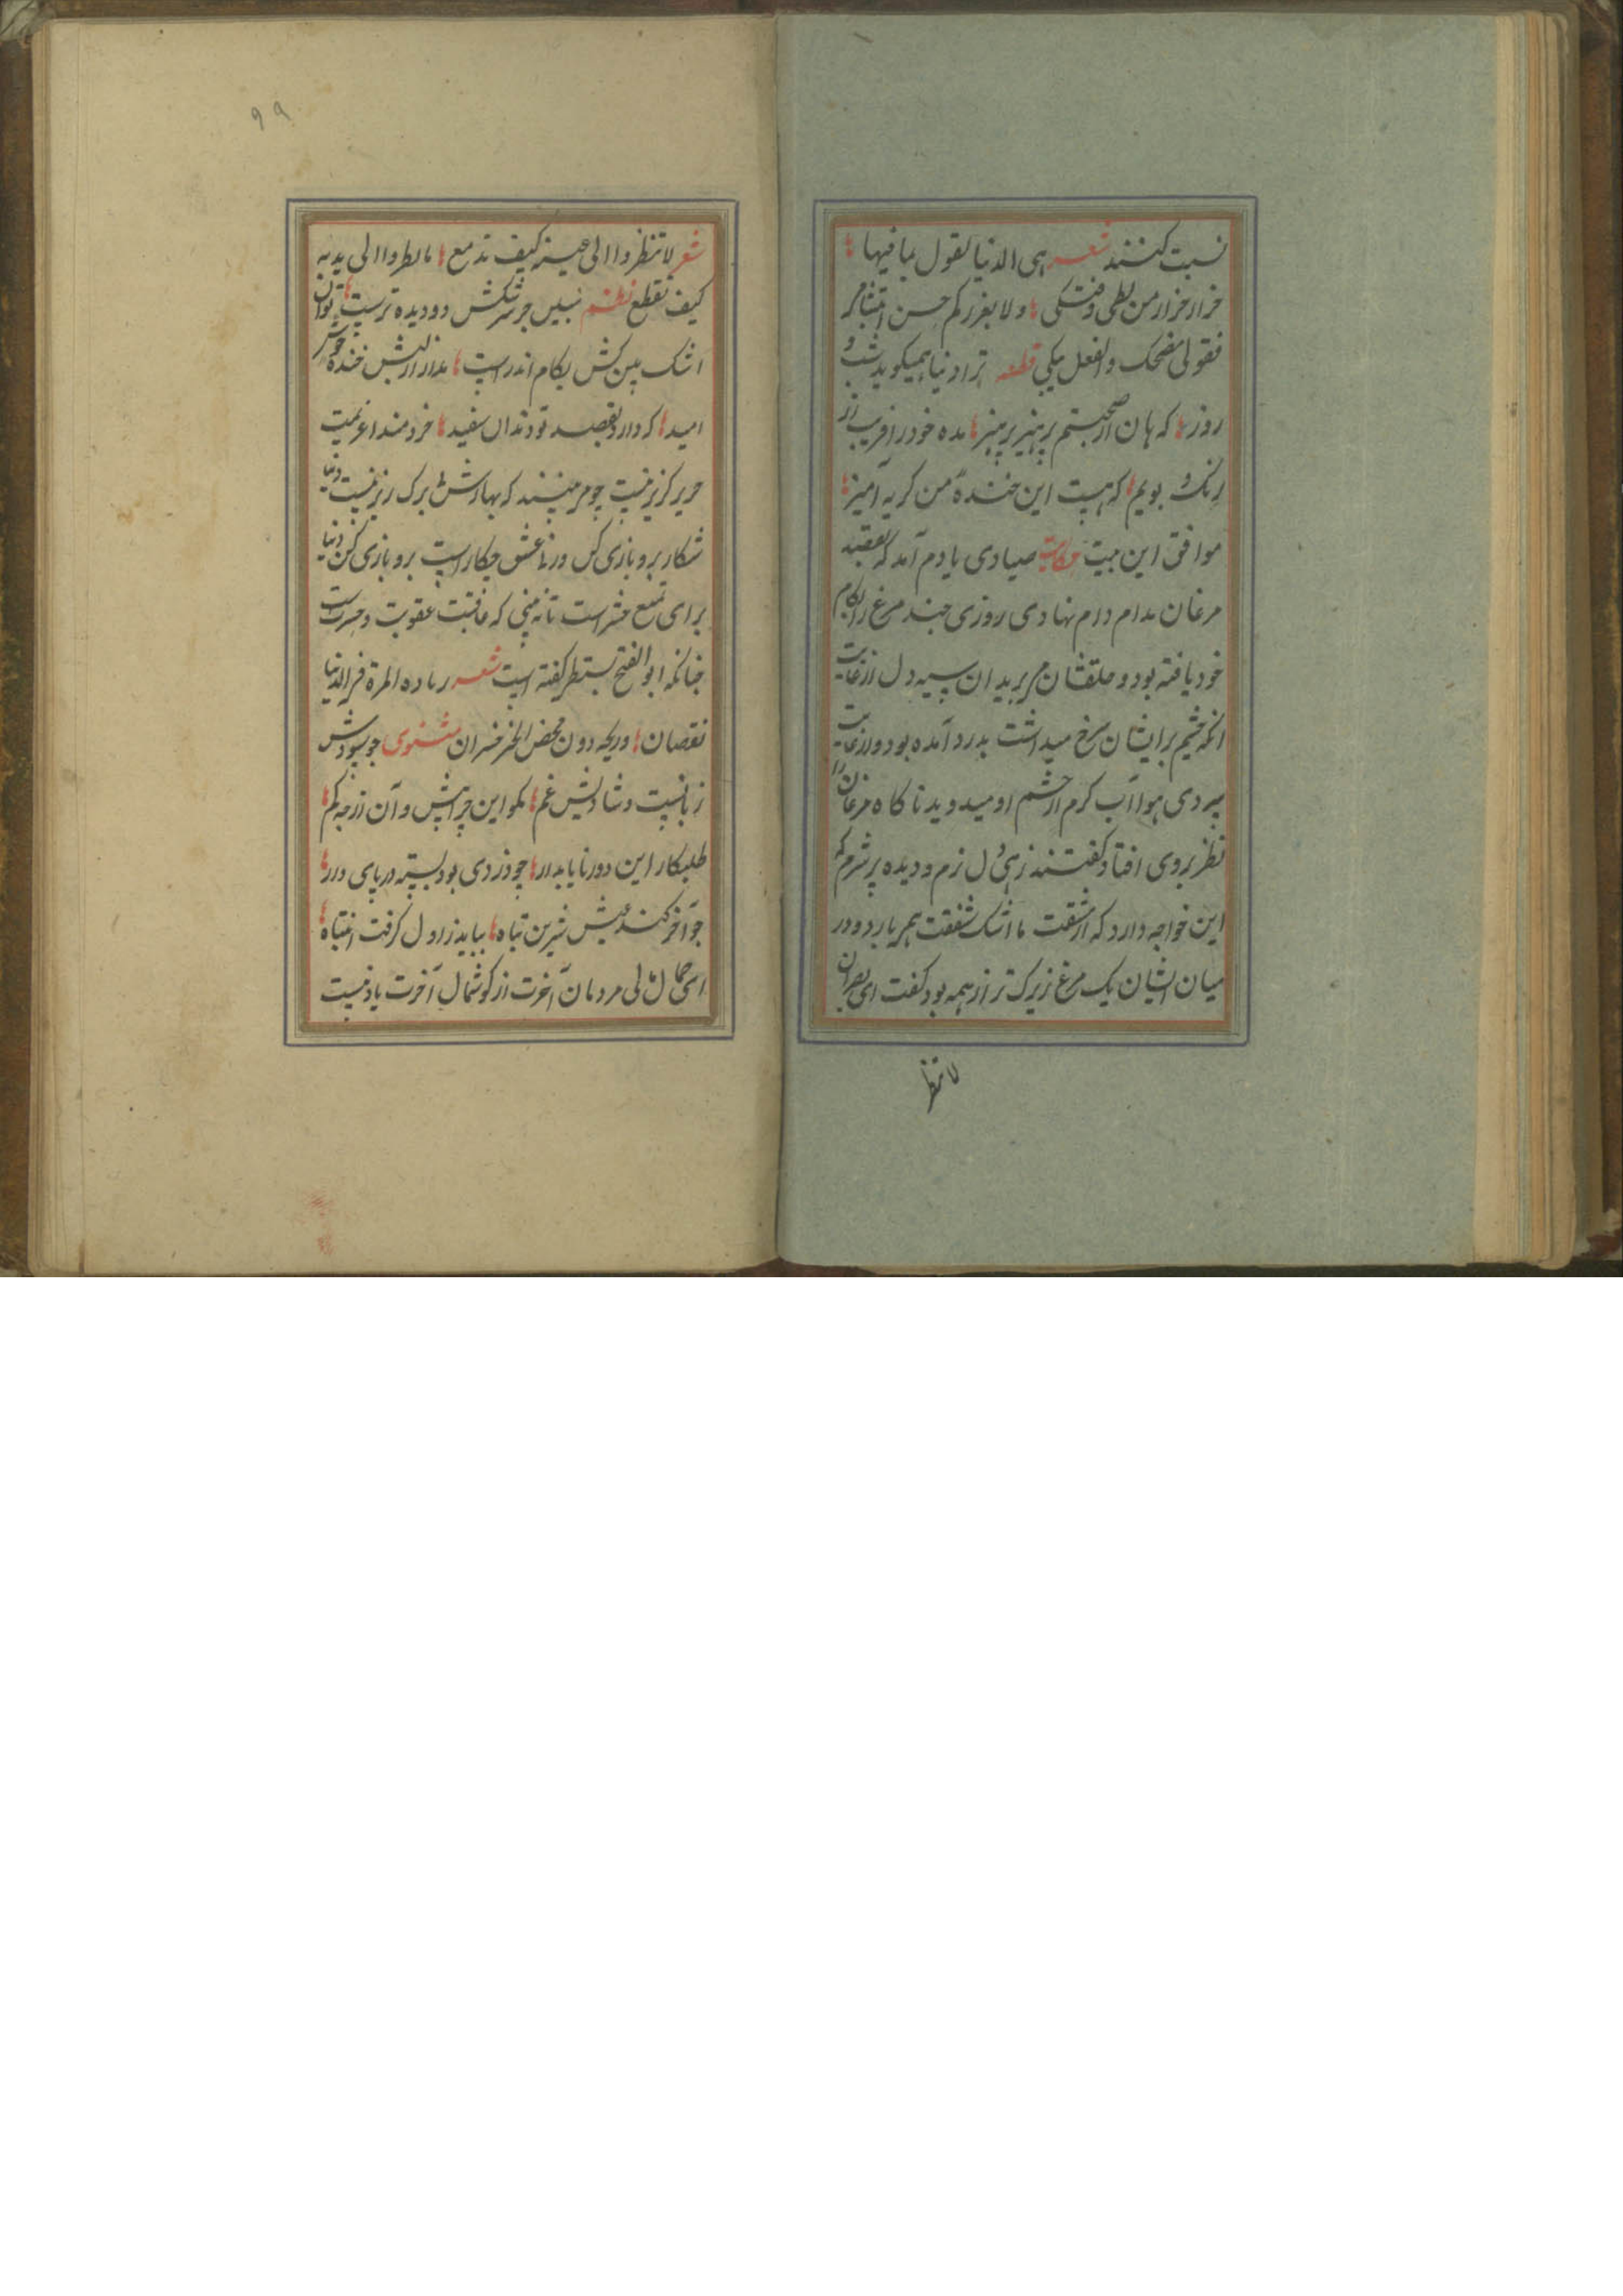 نسبت کنند شعر هی الدنیا تقول بما فیها
حذار حذار من بطشی و فتکی ولا یغررکم حسن ابتسامی
فقولی مضحک والفعل مبکی قطعه ترا دنیا همیکوید شب و
روز که هان از صحبتم پرهیز پرهیز مده خود را فریب از
رنک و بویم که هست این خندهٔ من کریه آمیز
موافق این بیت حکایت صیادی یادم آمد که بقصد
مرغان مدام دام نهادی روزی چند مرغ را بکام
خود یافته بود و حلقشان می‌برید ان سیه دل از غایت
انکه چشم بر ایشان سرخ میداشت بدرد آمده بود و از غایت
سردی هوا آب کرم از چشم او میدوید ناکاه مرغان را
نظر بروی افتاد کفتند زهی دل نرم و دیده پر شرم که
این خواجه دارد که از مشقت ما اشک شفقت همی بارد و در
میان ایشان یک مرغ زیرک تر از همه بود کفت ای
لا تنظر
۹۹
شعر لا تنظروا الی عینه کیف تدمع بل انظروا الی یدیه
کیف تقطع نظم مبین جز سرشکش دو دیده ترست توان
اشک بین کش بکام اندر است مدار از لبش خندهٔ خوش
امید که دارد بقصد تو دندان سفید خردمند
کریز نیست چو می بیند که بهارش برک ریز نیست دنیا
شکار برو بازی کن ورنه عشق چکار است برو بازی کن دنیا
برای تمتع خوش است تا نه بینی که عاقبت عقوبت و حسرت است
چنانکه ابو الفتح بستی کفته است شعر زیاده المرء فی الدنیا
نقصان وربحه دون محض الخیر خسران مثنوی چو سودش
زیانست و شادیش غم مکو این چرا بیش و آن از چه کم
طلبکار این دور ناپایدار چو دزدی بود بسته در پای دار
چو آخر کند عیش شیرین تباه بباید ز اول کرفت انتباه
مردمان آخرت از کوشمال آخرت یاد نیست